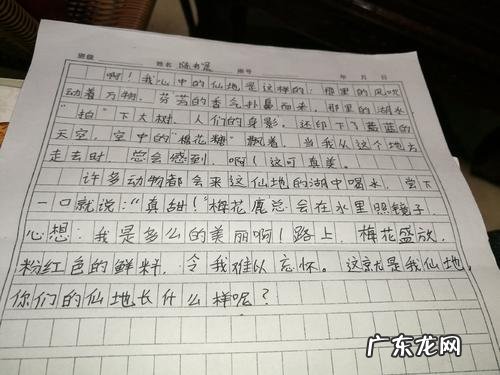 班级 姓名 陈书涵 座号 年 月 日
啊!我心中的仙地是这样的:那里的风吹
动着万树,芬芳的香气扑鼻而来,那里的湖水
“拍”下大树、人们的身影,还印下了蓝蓝的
天空,空中的“棉花糖”飘着,当我从这个地方
走去时,总会感到,啊!这可真美。
许多动物都会来这仙地的湖中喝水,尝下
一口就说:“真甜!”梅花鹿总会在水里照镜子,
心想:我是多么的美丽啊!路上,梅花盛放,
粉红色的鲜料,令我难以忘怀。这就是我仙地,
你们的仙地长什么样呢?
广东龙网